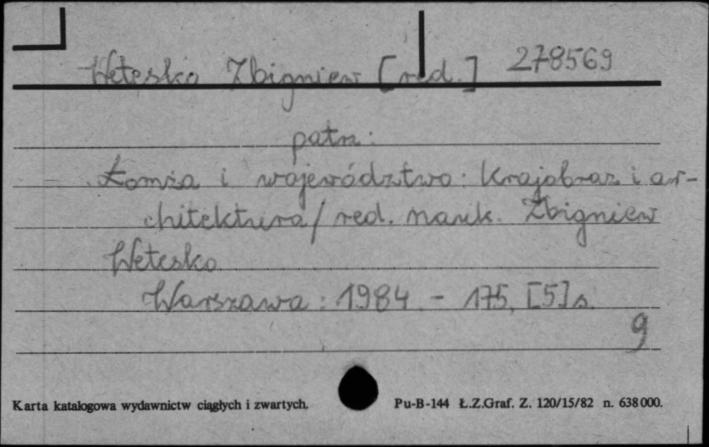 Wetesko Zbigniew [red.] 278569
patrz:
Łomża i województwo: Krajobraz i ar-
chitektura / red. nauk. Zbigniew
Wetesko
Warszawa : 1984. - 175, [5] s.
9
Karta katalogowa wydawnictw ciągłych i zwartych. Pu-B-144 Ł.Z.Graf. Z. 120/15/82 n. 638 000.